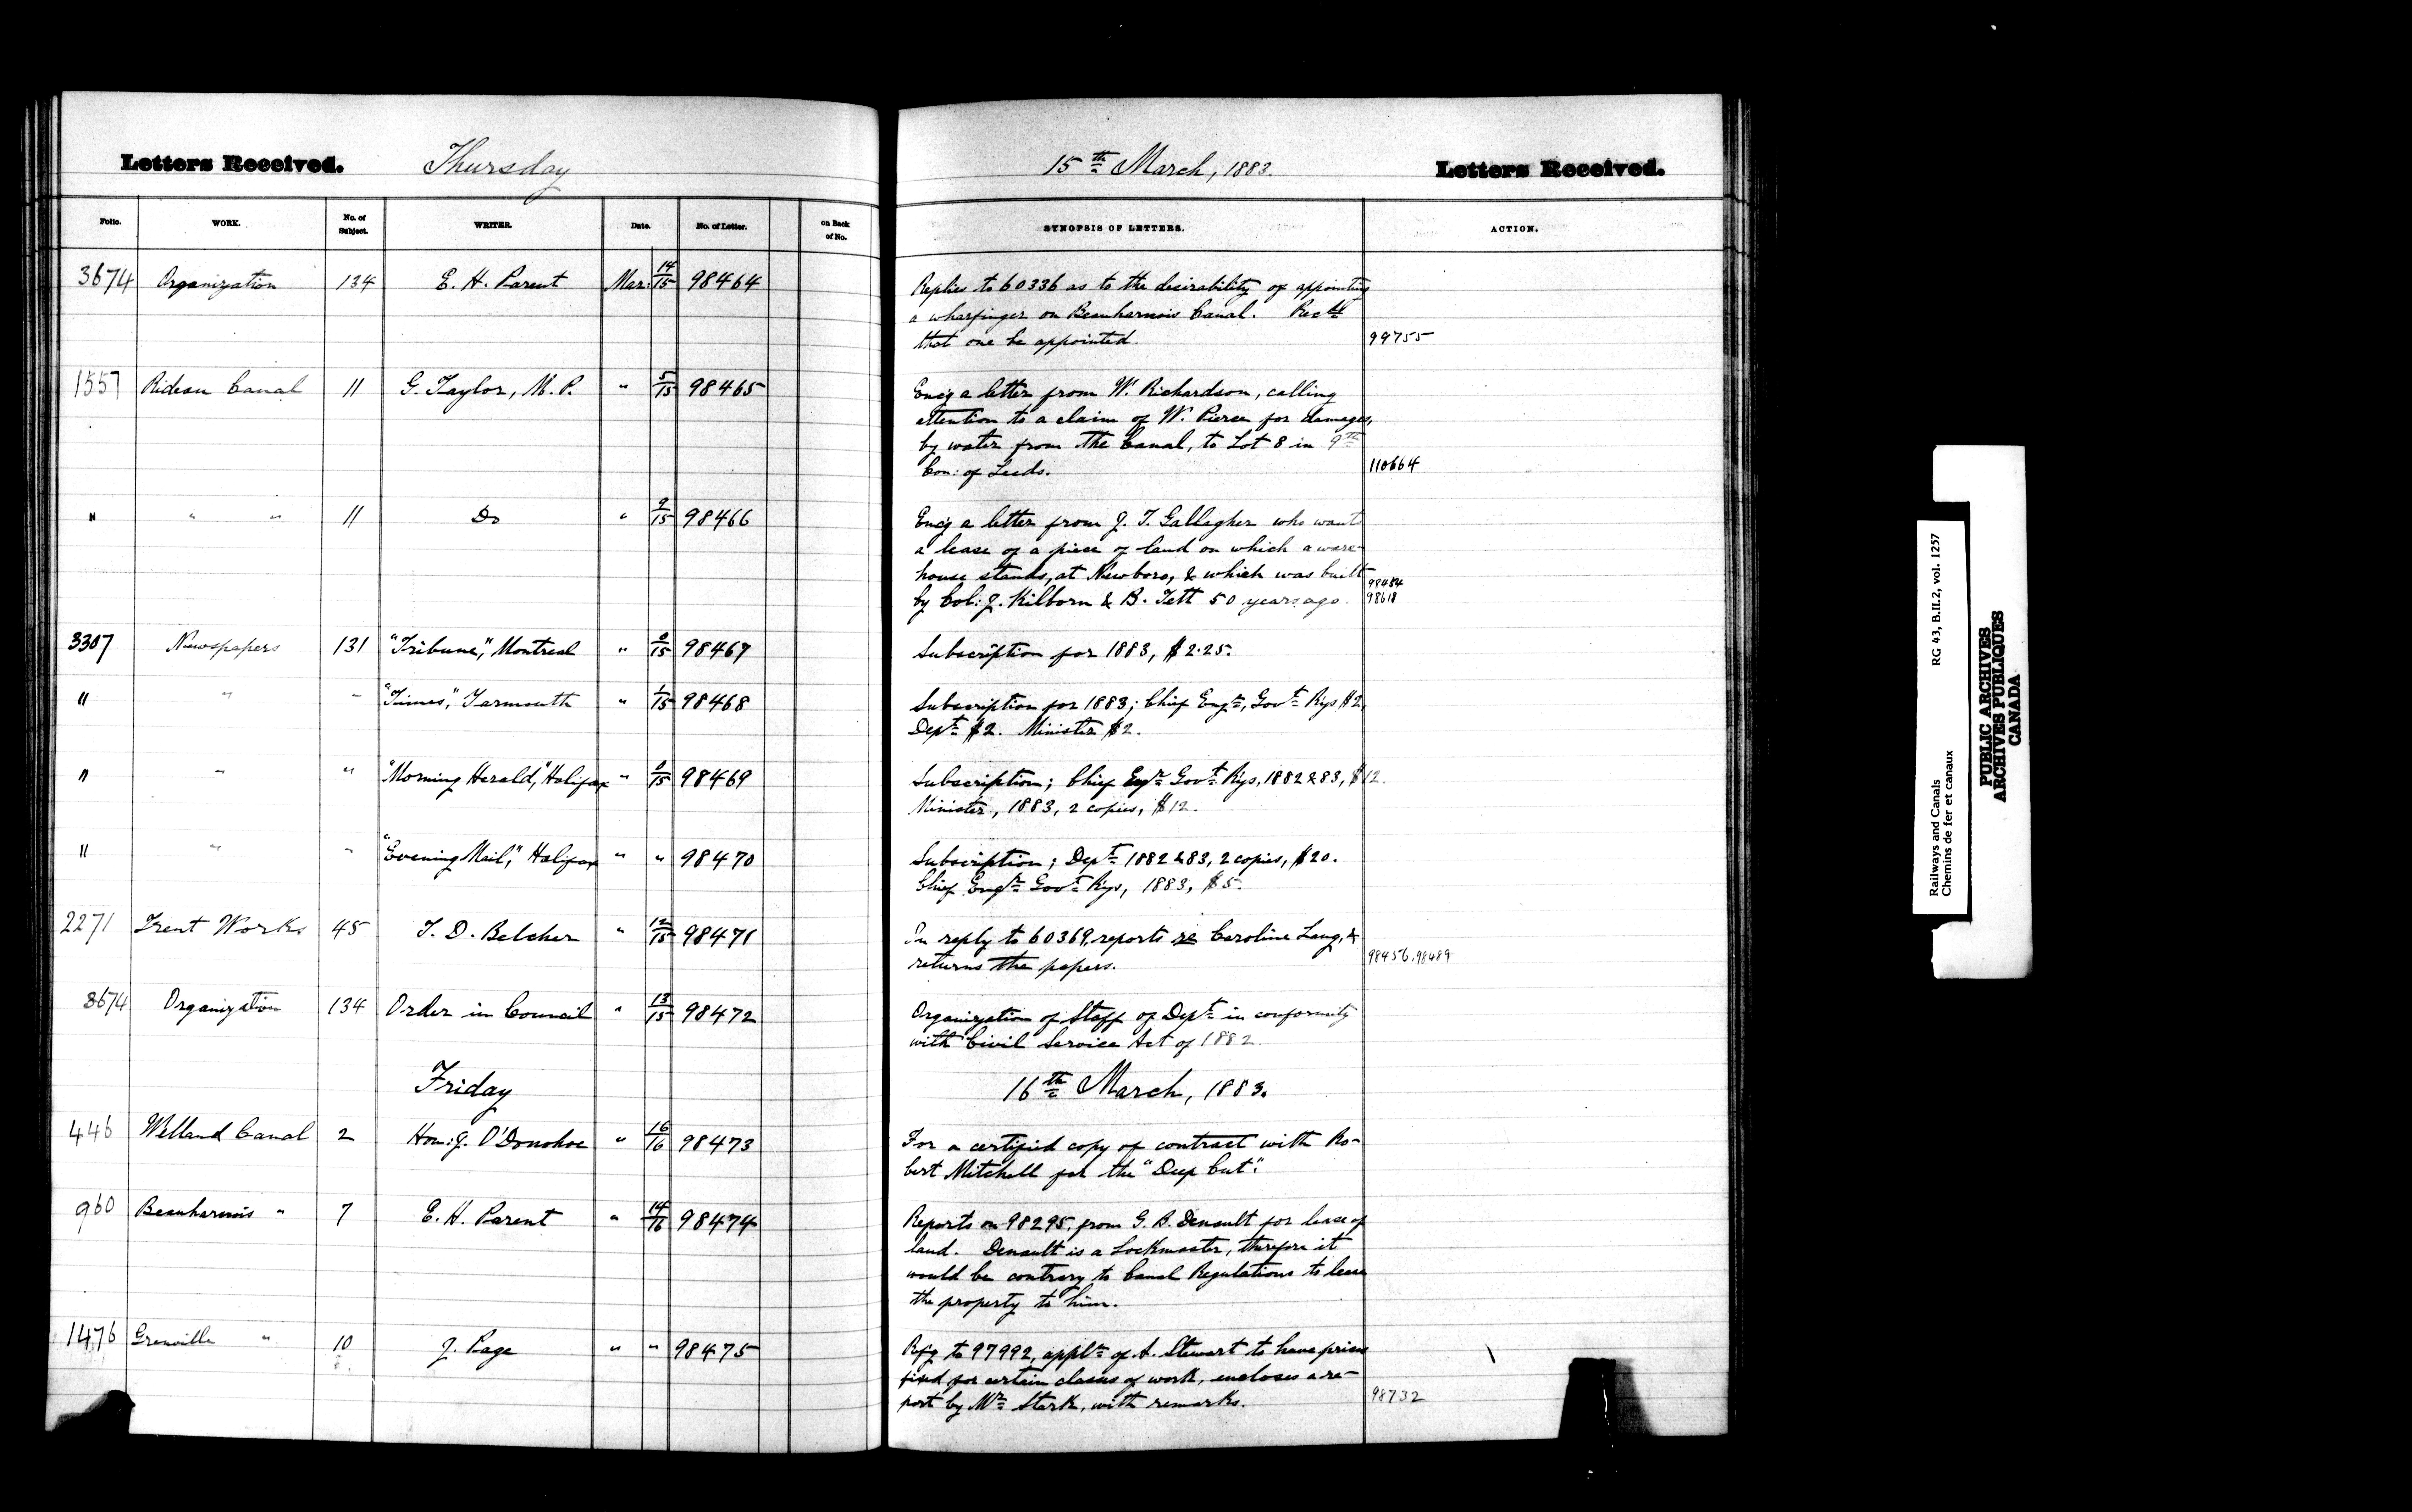 Letters Received. Thursday 15th March, 1883. Letters Received.
Folio. WORK. No. of Subject. WRITER. Date. No. of Letter. on Back of No. SYNOPSIS OF LETTERS. ACTION.
3674 Organization 134 E. H. Parent Mar: 14/15 98464 Replies to 60336 as to the desirability of appointing
a wharfinger on Beauharnois Canal. Recds
that one be appointed. 99755
1557 Rideau Canal 11 G. Taylor, M. P. " 5/15 98465 Encg a letter from W. Richardson, calling
attention to a claim of W. Pierce for damages,
by water from the Canal, to Lot 8 in 9th
Con: of Leeds. 110664
" " " 11 Do " 9/15 98466 Encg a letter from J. T. Gallagher who wants
a lease of a piece of land on which a ware-
house stands, at Newboro, & which was built 99484
by Col: J. Kilborn & B. Tett 50 years ago. 98618
3307 Newspapers 131 "Tribune", Montreal " 0/15 98467 Subscription for 1883, $2.25.
" " - "Times", Yarmouth " 1/15 98468 Subscription for 1883; Chief Engr, Govt Rys $2,
Dept $2. Minister $2.
" " " "Morning Herald," Halifax " 0/15 98469 Subscription; Chief Engr Govt Rys, 1882 & 83, $12.
Minister, 1883, 2 copies, $12.
" " " "Evening Mail," Halifax " " 98470 Subscription; Dept 1882 & 83, 2 copies, $20.
Chief Engr Govt Rys, 1883, $5.
2271 Trent Works 45 T. D. Belcher " 12/15 98471 In reply to 60369, reports re Caroline Lang, &
returns the papers. 98456, 98489
3674 Organization 134 Order in Council " 13/15 98472 Organization of Staff of Dept in conformity
with Civil Service Act of 1882.
Friday 16th March, 1883.
446 Welland Canal 2 Hon: J. O'Donohoe " 16/16 98473 For a certified copy of contract with Ro-
bert Mitchell for the "Deep Cut".
960 Beauharnois " 7 E. H. Parent " 14/16 98474 Reports on 98295, from G. B. Denault for lease of
land. Denault is a Lockmaster, therefore it
would be contrary to Canal Regulations to lease
the property to him.
1476 Grenville " 10 J. Page " " 98475 Rfg to 97992, applt of A. Stewart to have prices
fixed for certain classes of work, encloses a re-
port by Mr Stark, with remarks. 98732
Railways and Canals RG 43, B.II.2, vol. 1257
Chemins de fer et canaux
PUBLIC ARCHIVES
ARCHIVES PUBLIQUES
CANADA